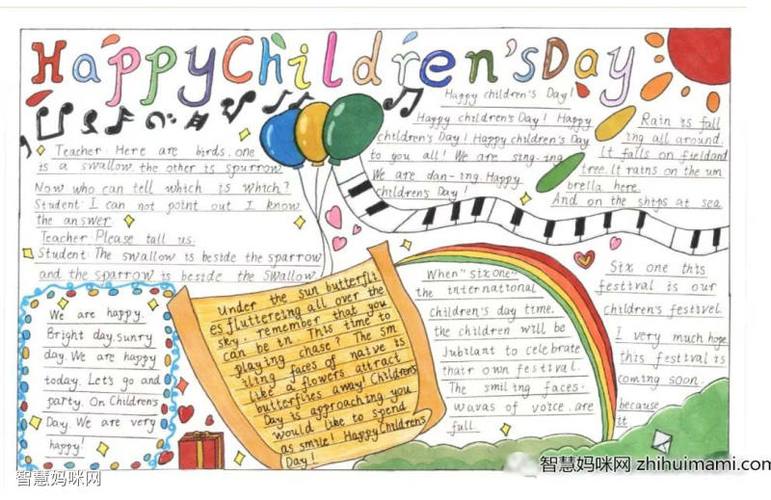 Happy Children'sDay
Teacher. Here are birds. one
is a swallow. the other is spurrow
Now who can tell which is which?
Student I can not point out I know
the answer
Teacher Please tall us.
Student The swallow is beside the sparrow
and the sparrow is beside the swallow
Happy children's Day!
Happy children's Day! Happy
children's Day! Happy children's Day
to you all! We are sing-ing
We are dan-ing. Happy
children's Day!
Rain is fall
ing all around.
It falls on fieldand
tree. It rains on the um
brella here.
And on the ships at sea
We are happy.
Bright day. sunry
day. We are happy
today. Let's go and
party. On Children's
Day. We are very
happy!
Under the sun butterfli
es fluttereing all over the
sky. remember that you
can be in. This time to
playing chase? The sm
iling faces of native is
like a flowers attract
butterflies away! Childrens
Day is approaching you
would like to spend
as smile! Happy Childrens
Day!
When "six one"
the international
children's day time.
the children will be
Jubilant to celebrate
thair own festival.
The smiling faces.
wavas of voice. are
full.
Six one this
festival is our
children's festivel.
I very much hope
this festival is
coming soon.
because
it
智慧妈咪网
智慧妈咪网 zhihuimami.com